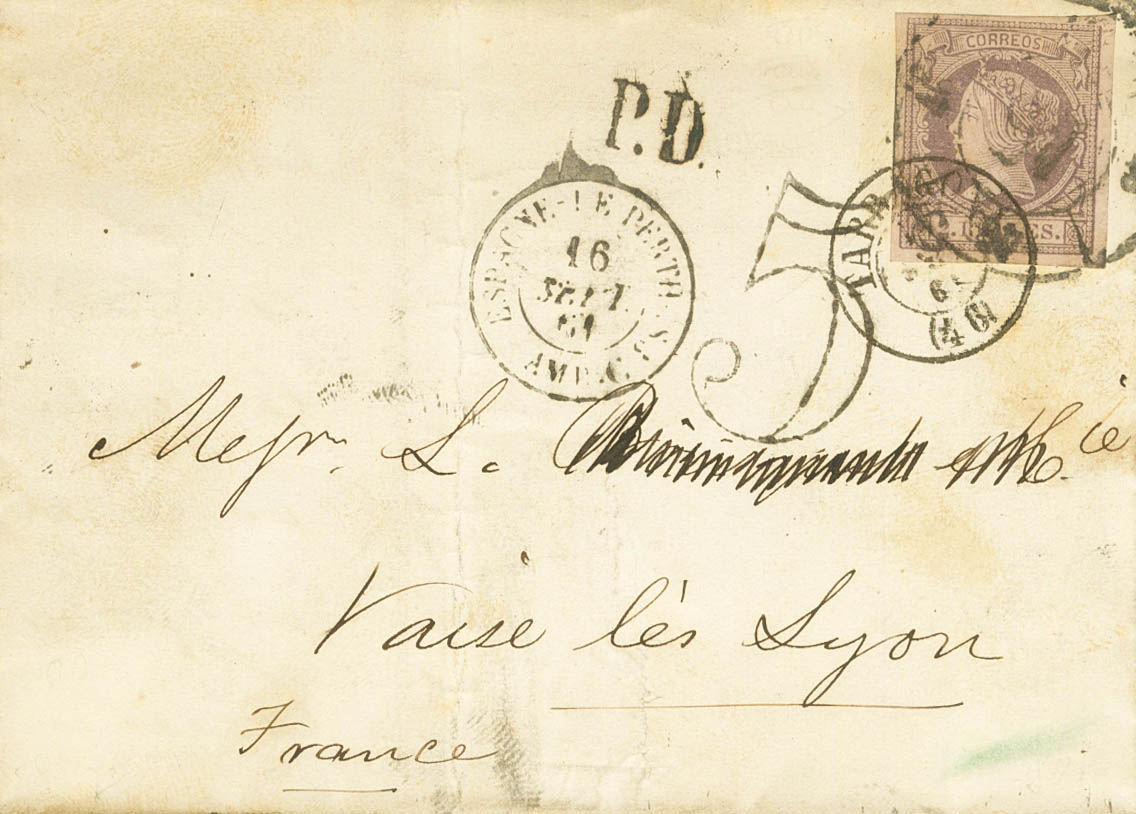 CORREOS
P.D.
ESPAGNE-LE PERTHUS
16
SEPT
61
AMB.C.
5
TARRAGONA
(46)
Messrs. L. & Cie
Vaise lès Lyon
France